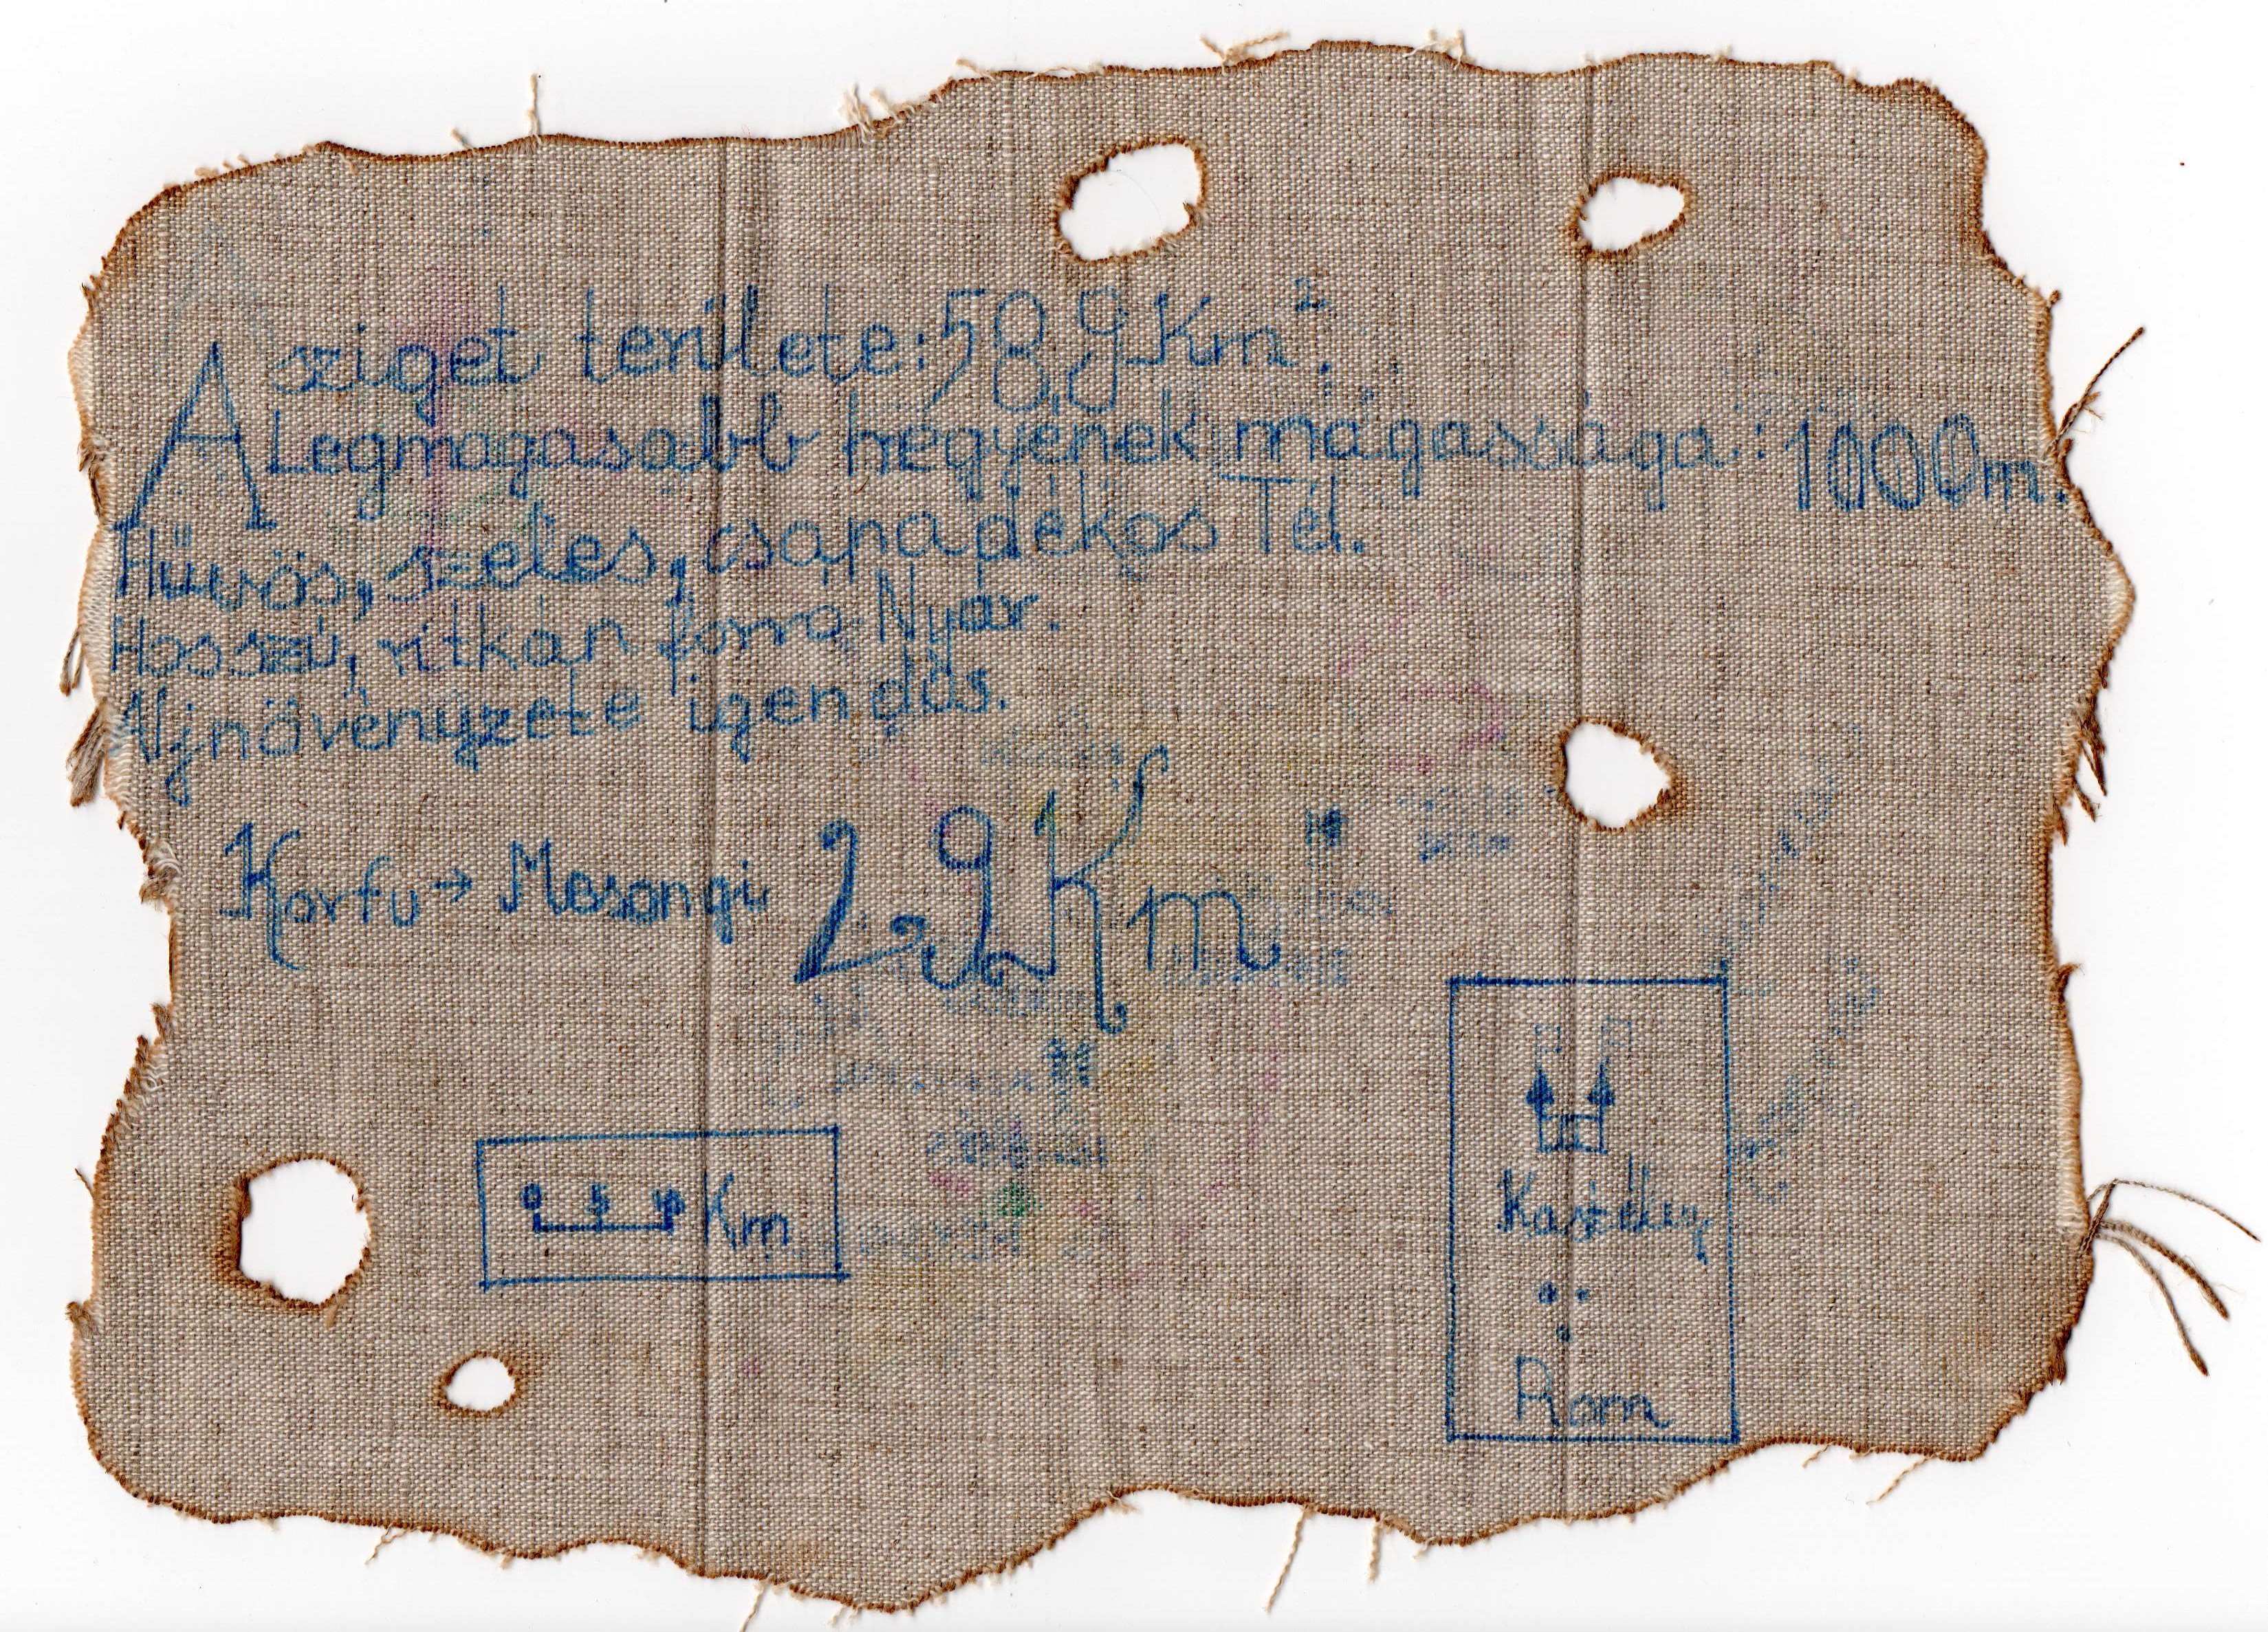 A sziget területe: 58,9 Km².
A Legmagasabb hegyének mágassága: 1000m.
Hüvös, szeles, csapadékos Tél.
Hosszú, ritkán forró Nyár.
Aljnövényzete igen dús.
Korfu → Mesongi 29 Km
0 5 10 Km
Kastély
Rom